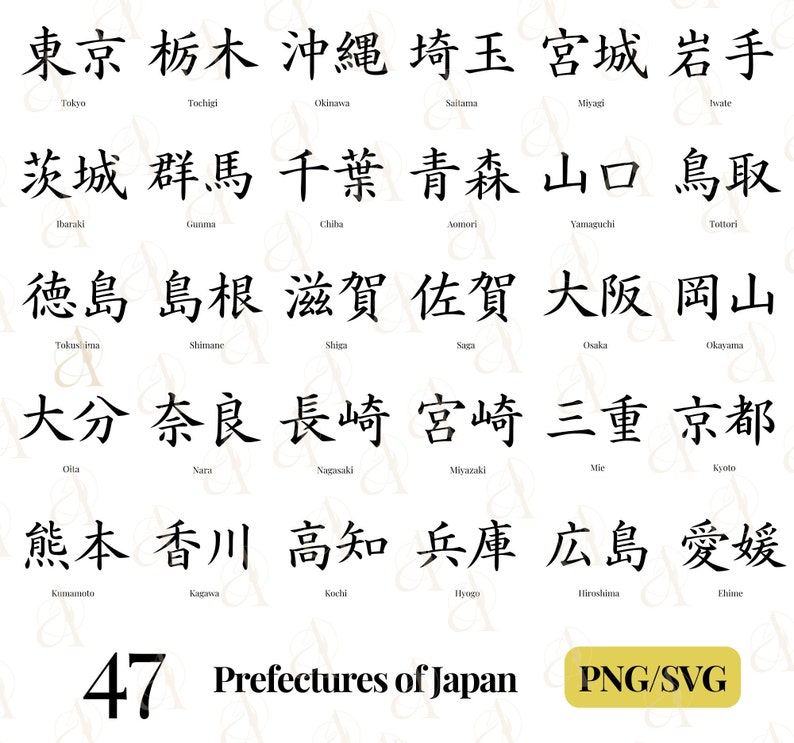 東京 栃木 沖縄 埼玉 宮城 岩手
Tokyo Tochigi Okinawa Saitama Miyagi Iwate
茨城 群馬 千葉 青森 山口 鳥取
Ibaraki Gunma Chiba Aomori Yamaguchi Tottori
徳島 島根 滋賀 佐賀 大阪 岡山
Tokushima Shimane Shiga Saga Osaka Okayama
大分 奈良 長崎 宮崎 三重 京都
Oita Nara Nagasaki Miyazaki Mie Kyoto
熊本 香川 高知 兵庫 広島 愛媛
Kumamoto Kagawa Kochi Hyogo Hiroshima Ehime
47 Prefectures of Japan PNG/SVG